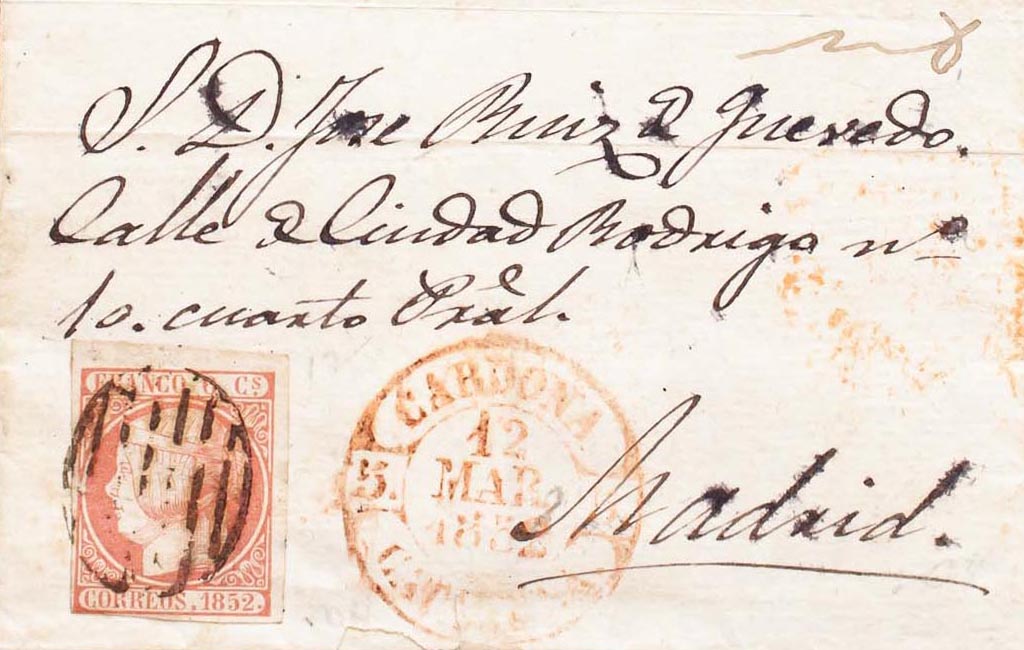 S. D. Jose Ruiz de Quevedo.
Calle de Ciudad Rodrigo nº
10. cuarto Pral.
Madrid.
FRANCO. 6. Cs
CORREOS. 1852.
CARDONA
12
MAR
1852
5.